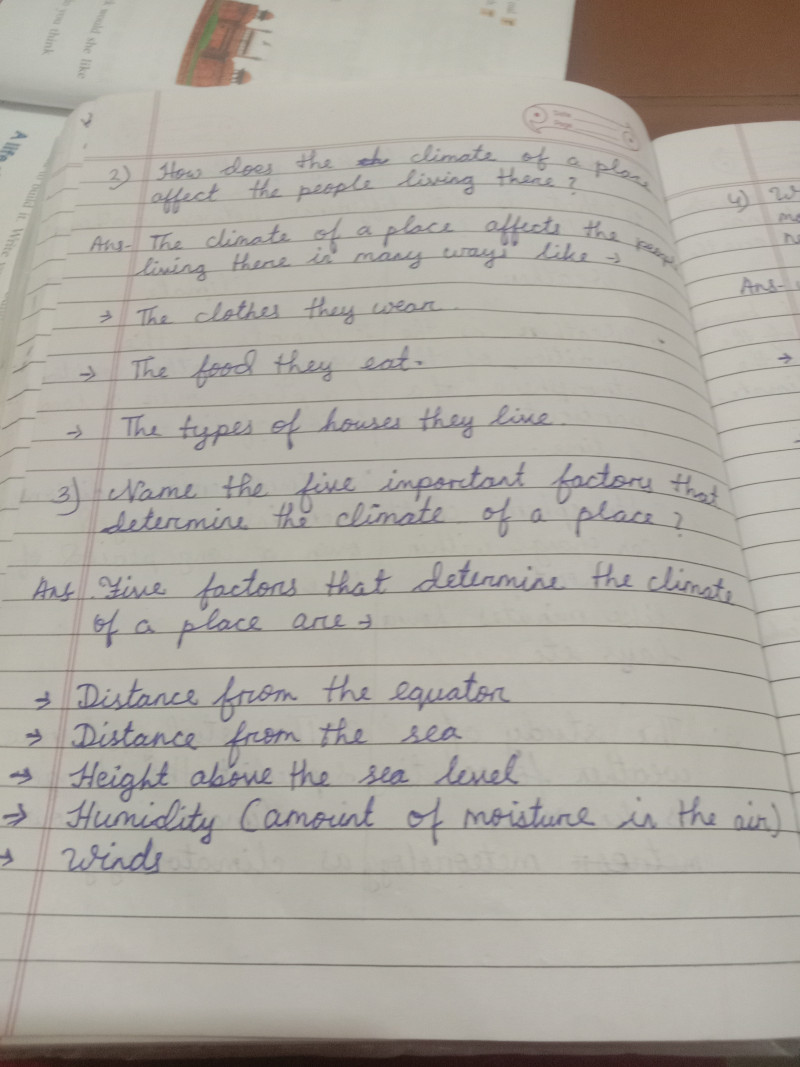 k would she like
do you think
A life
Write
Date
Page
2) How does the climate of a place
affect the people living there?
Ans- The climate of a place affects the people
living there in many ways like →
→ The clothes they wear.
→ The food they eat.
→ The types of houses they live.
3) Name the five inportant factors that
determine the climate of a place?
Ans. Five factors that determine the climate
of a place are →
→ Distance from the equator
→ Distance from the sea
→ Height above the sea level
→ Humidity (amount of moisture in the air)
→ Winds
4) W
Ans-
→